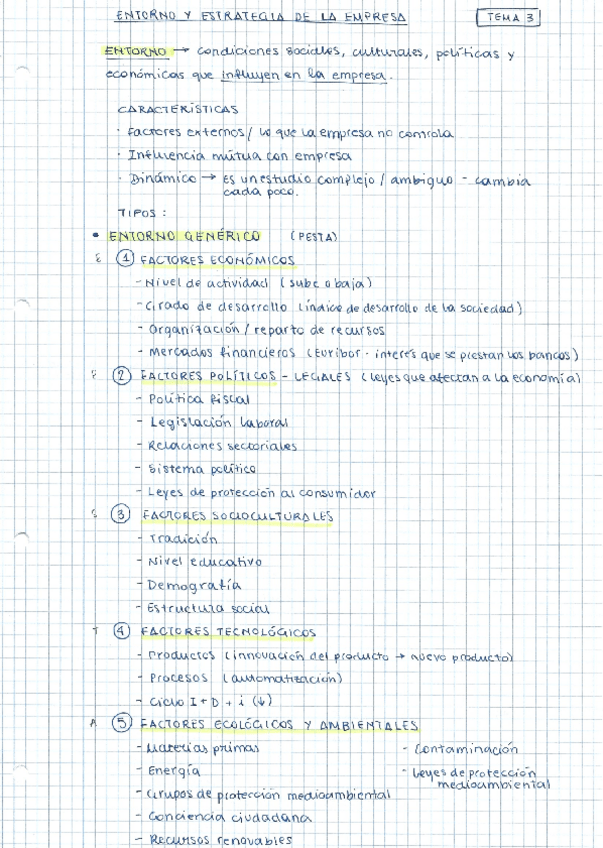 ENTORNO Y ESTRATEGIA DE LA EMPRESA
TEMA 3
ENTORNO → condiciones sociales, culturales, políticas y
económicas que influyen en la empresa.
CARACTERÍSTICAS
· Factores externos / lo que la empresa no controla
· Influencia mútua con empresa
· Dinámico → es un estudio complejo / ambiguo - cambia
cada poco.
TIPOS:
• ENTORNO GENÉRICO (PESTA)
E ① FACTORES ECONÓMICOS
- Nivel de actividad (sube o baja)
- Grado de desarrollo (índice de desarrollo de la sociedad)
- Organización / reparto de recursos
- Mercados financieros (Euribor · interés que se prestan los bancos)
P ② FACTORES POLÍTICOS - LEGALES (leyes que afectan a la economía)
- Política fiscal
- Legislación laboral
- Relaciones sectoriales
- Sistema político
- Leyes de protección al consumidor
S ③ FACTORES SOCIOCULTURALES
- Tradición
- Nivel educativo
- Demografía
- Estructura social
T ④ FACTORES TECNOLÓGICOS
- Productos (innovación del producto → nuevo producto)
- Procesos (automatización)
- Ciclo I + D + i (↓)
A ⑤ FACTORES ECOLÓGICOS Y AMBIENTALES
- Materias primas
- Energía
- Grupos de protección medioambiental
- Conciencia ciudadana
- Recursos renovables
- Contaminación
- Leyes de protección
medioambiental